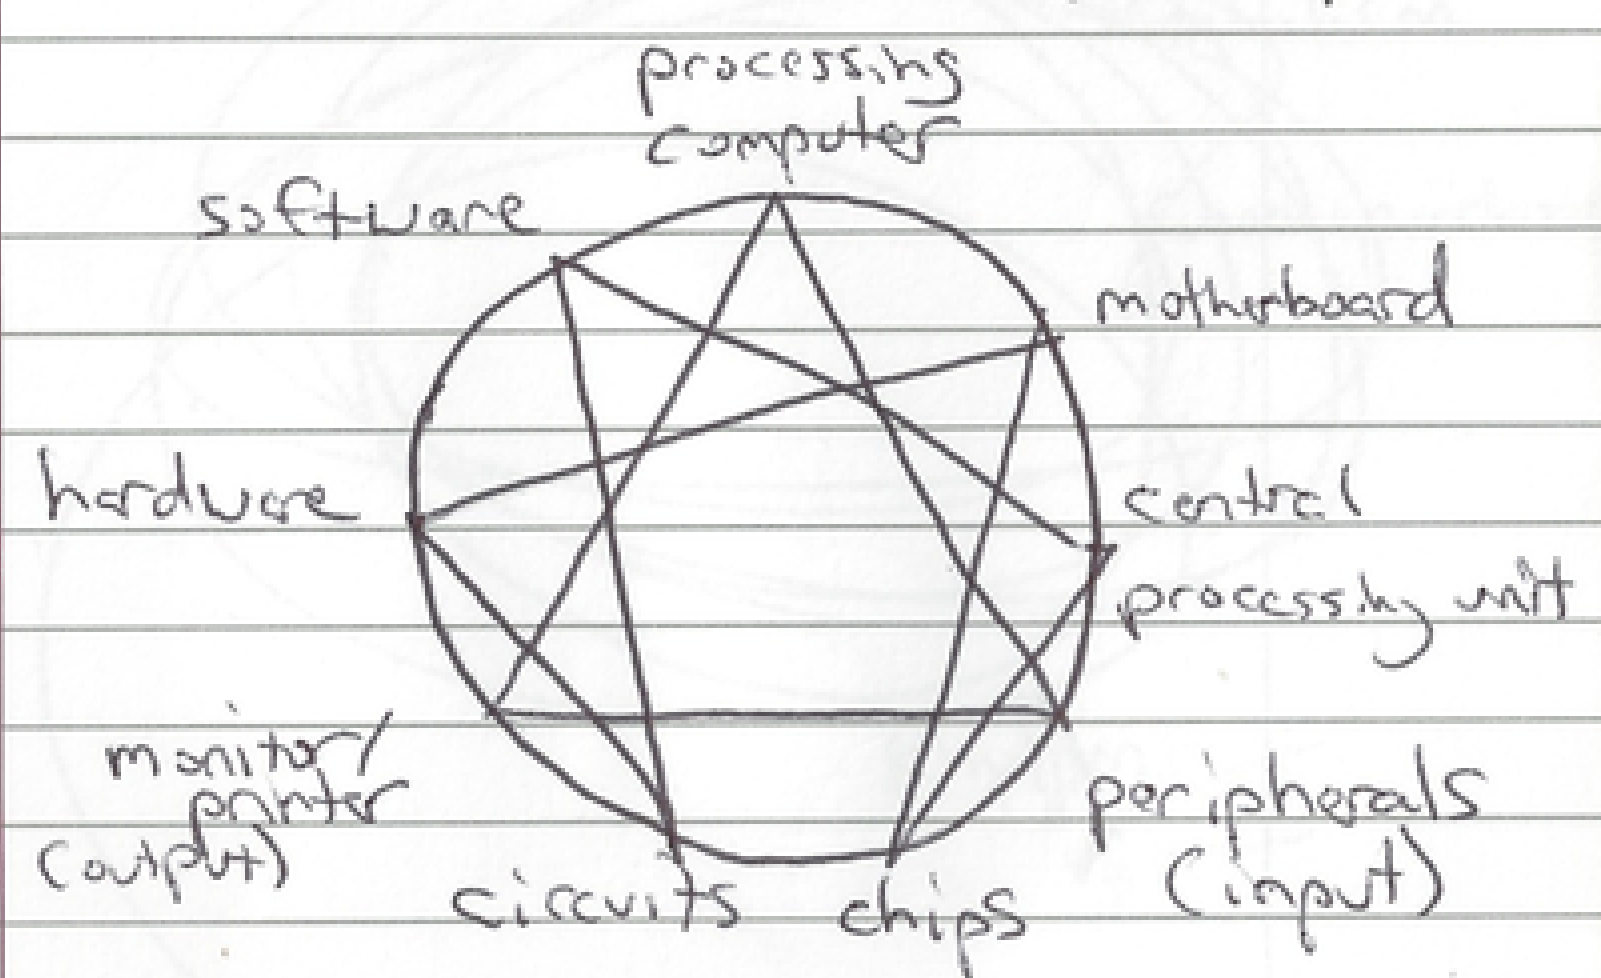 processing
computer
software
motherboard
hardware
central
processing unit
monitor/
printer
(output)
peripherals
(input)
circuits
chips